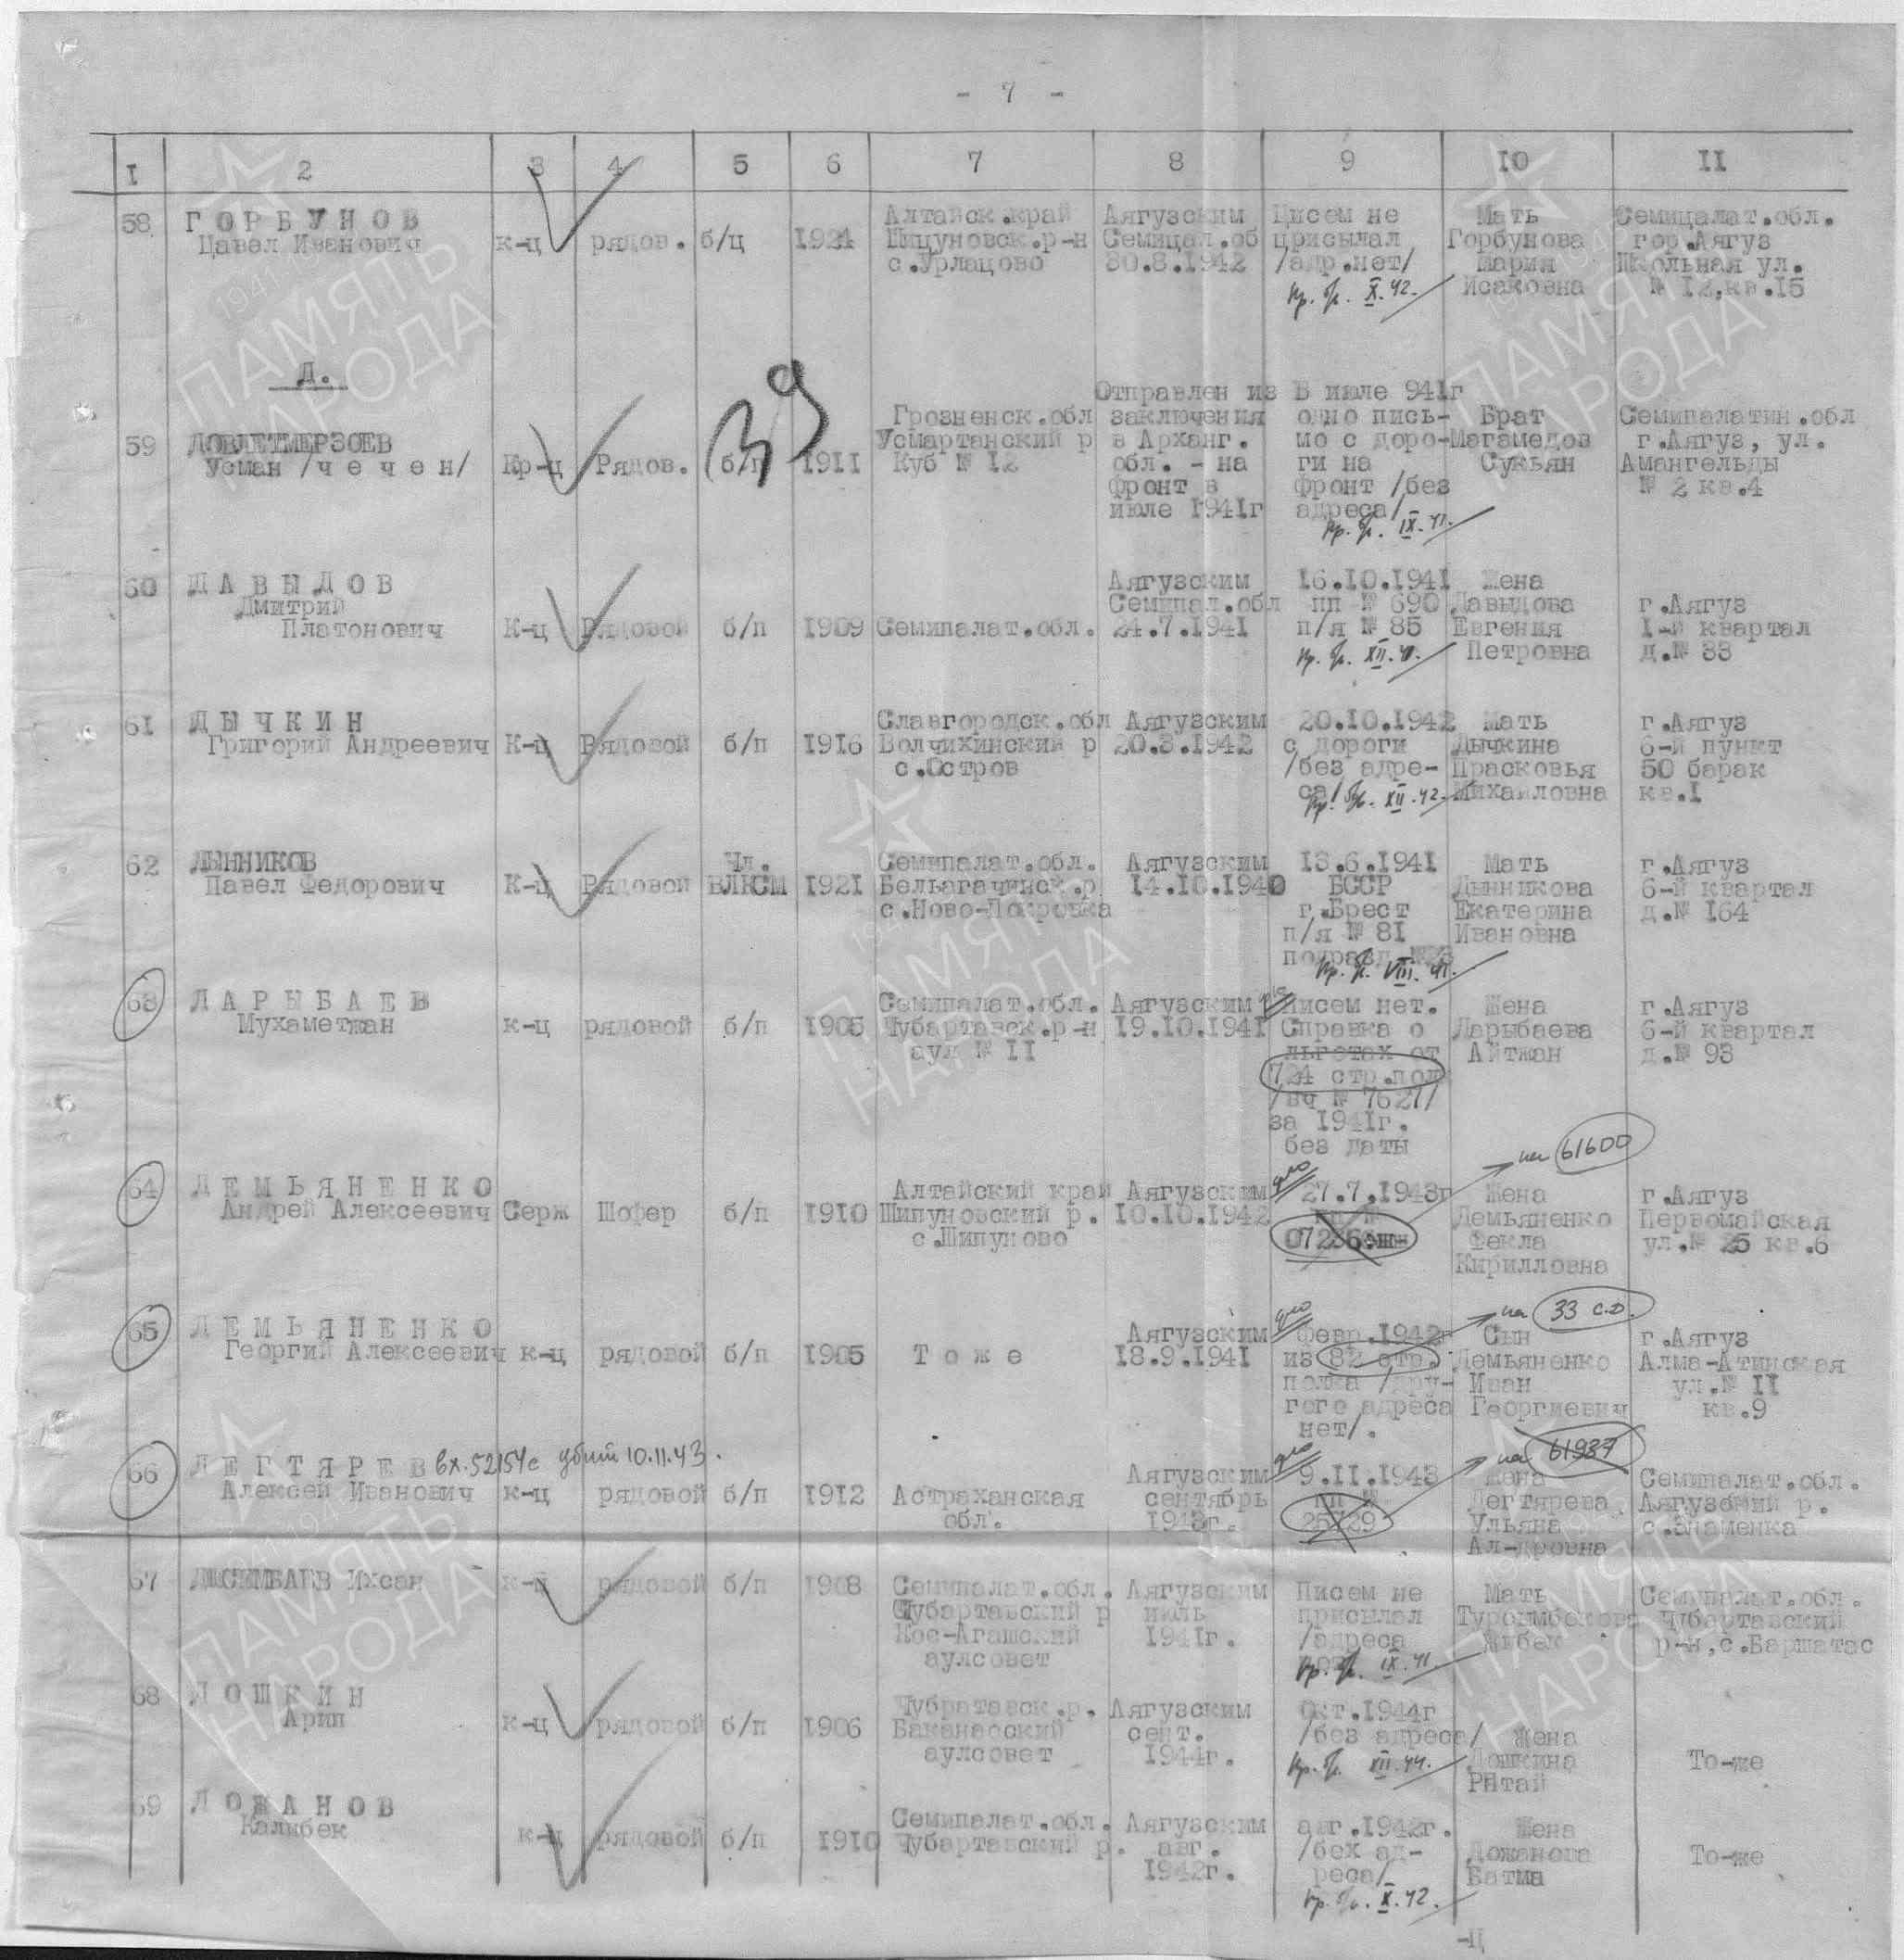 - 7 -
I 2 3 4 5 6 7 8 9 10 II
58 ГОРБУНОВ
Цавел Иванович
к-ц
рядов.
б/ц
1924
Алтайск.край
Шицуновск.р-н
с.Урлацово
Аягузским
Семицал.об
30.8.1942
Цисем не
црисылал
/адр.нет/
Пр. бр. X.42.
Мать
Горбунова
Мария
Исаковна
Семицалат.обл.
гор.Аягуз
Школьная ул.
№ 12,кв.15
Д.
39
59 ДОВЛЕТМЕРЗОЕВ
Усман /ч е ч е н/
Кр-ц
Рядов.
б/п
1911
Грозненск.обл
Усмартанский р
Куб № 12
Отправлен из
заключения
в Арханг.
обл. - на
фронт в
июле 1941г
В июле 941г
одно пись-
мо с доро-
ги на
фронт /без
адреса/
Пр. бр. IX.41.
Брат
Магамедов
Сукьян
Семипалатин.обл
г.Аягуз, ул.
Амангельды
№ 2 кв.4
60 ДАВЫДОВ
Дмитрий
Платонович
К-ц
Рядовой
б/п
1909
Семипалат.обл.
Аягузским
Семипал.обл
24.7.1941
16.10.1941
пп № 690
п/я № 85
Пр. бр. XII.41.
Жена
Давыдова
Евгения
Петровна
г.Аягуз
1-й квартал
д.№ 33
61 ДЫЧКИН
Григорий Андреевич
К-ц
Рядовой
б/п
1916
Славгородск.обл
Волчихинский р
с.Остров
Аягузским
20.3.1942
20.10.1942
с дороги
/без адре-
са/
Пр. бр. XII.42.
Мать
Дычкина
Прасковья
Михайловна
г.Аягуз
6-й пункт
50 барак
кв.I
62 ДЫННИКОВ
Павел Федорович
К-ц
Рядовой
Чл.
ВЛКСМ
1921
Семипалат.обл.
Бельагачинск.р
с.Ново-Покровка
Аягузским
14.10.1940
13.6.1941
БССР
г.Брест
п/я № 81
подразд.№
Пр. бр. VIII.41.
Мать
Дынникова
Екатерина
Ивановна
г.Аягуз
6-й квартал
д.№ 164
63 ДАРЫБАЕВ
Мухаметжан
к-ц
рядовой
б/п
1905
Семипалат.обл.
Чубартавск.р-н
аул № II
Аягузским
19.10.1941
Писем нет.
Справка о
льготах от
724 стр.пол
/вч № 7627/
за 1941г.
без даты
Жена
Дарыбаева
Айтжан
г.Аягуз
6-й квартал
д.№ 93
64 ДЕМЬЯНЕНКО
Андрей Алексеевич
Серж
Шофер
б/п
1910
Алтайский край
Шипуновский р.
с.Шипуново
Аягузским
10.10.1942
27.7.1943г
пп №
07236
на 61600
Жена
Демьяненко
Фекла
Кирилловна
г.Аягуз
Первомайская
ул.№ 25 кв.6
65 ДЕМЬЯНЕНКО
Георгий Алексеевич
к-ц
рядовой
б/п
1905
Т о ж е
Аягузским
18.9.1941
Февр.1942г
из 82 стр.
полка /дру-
гого адреса
нет/.
на 33 с.д.
Сын
Демьяненко
Иван
Георгиевич
г.Аягуз
Алма-Атинская
ул.№ II
кв.9
66 ДЕГТЯРЕВ вх.52154с убит 10.11.43.
Алексей Иванович
к-ц
рядовой
б/п
1912
Астраханская
обл.
Аягузским
сентябрь
1943г.
9.II.1943
пп №
25729
на 61937
Жена
Дегтярева
Ульяна
Ал-дровна
Семипалат.обл.
Аягузский р.
с.Знаменка
67 ДЮСЕМБАЕВ Ихсан
к-ц
рядовой
б/п
1908
Семипалат.обл.
Чубартавский р
Кос-Агашский
аулсовет
Аягузским
июль
1941г.
Писем не
присылал
/адреса
Пр. бр. IX.41
Мать
Турсымбекова
Жибек
Семипалат.обл.
Чубартавский
р-н,с.Баршатас
68 ДОШКИН
Арип
к-ц
рядовой
б/п
1906
Чубратавск.р.
Баканасский
аулсовет
Аягузским
сент.
1944г.
Окт.1944г
/без адреса/
Пр. бр. XII.44.
Жена
Дошкина
Рятай
То-же
69 ДОЖАНОВ
Калибек
к-ц
рядовой
б/п
1910
Семипалат.обл.
Чубартавский р.
Аягузским
авг.
1942г.
авг.1942г.
/бех ад-
реса/
Пр. бр. X.42.
Жена
Дожанова
Батма
То-же
-Ц